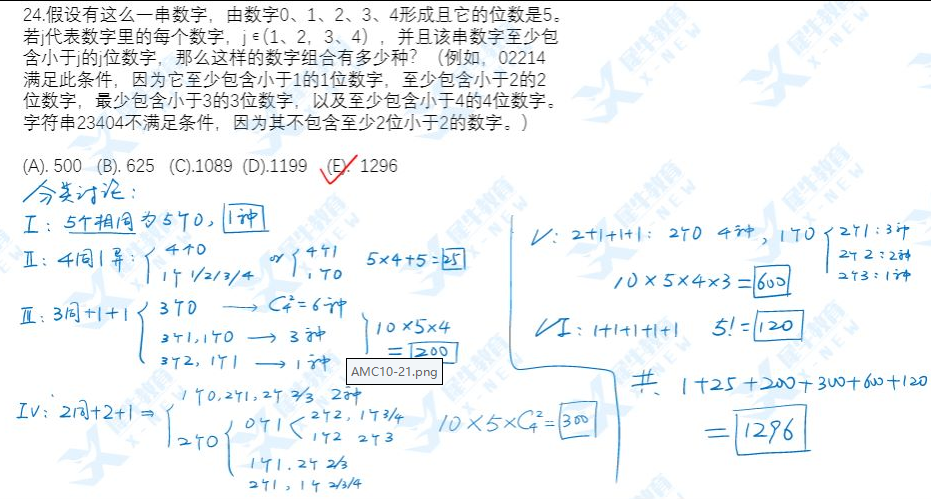 24.假设有这么一串数字，由数字0、1、2、3、4形成且它的位数是5。
若j代表数字里的每个数字，j∈(1、2，3、4），并且该串数字至少包
含小于j的j位数字，那么这样的数字组合有多少种？（例如，02214
满足此条件，因为它至少包含小于1的1位数字，至少包含小于2的2
位数字，最少包含小于3的3位数字，以及至少包含小于4的4位数字。
字符串23404不满足条件，因为其不包含至少2位小于2的数字。）
(A). 500 (B). 625 (C).1089 (D).1199 (E). 1296
分类讨论：
I：5个相同为5个0，1种
II：4同1异：
4个0
1个1/2/3/4
or
4个1
1个0
5×4+5=25
III：3同+1+1
3个0 → C₄²=6种
3个1,1个0 → 3种
3个2, 1个1 → 1种
10×5×4
=200
AMC10-21.png
IV：2同+2+1 ⇒
1个0,2个1,2个2/3 2种
2个0
0个1
2个2, 1个3/4
1个2 2个3
1个1. 2个2/3
2个1, 1个2/3/4
10×5×C₄²=300
V：2+1+1+1：2个0 4种，1个0
2个1：3种
2个2：2种
2个3：1种
10×5×4×3=600
VI：1+1+1+1+1 5!=120
共 1+25+200+300+600+120
=1296
犀牛教育
X-NEW